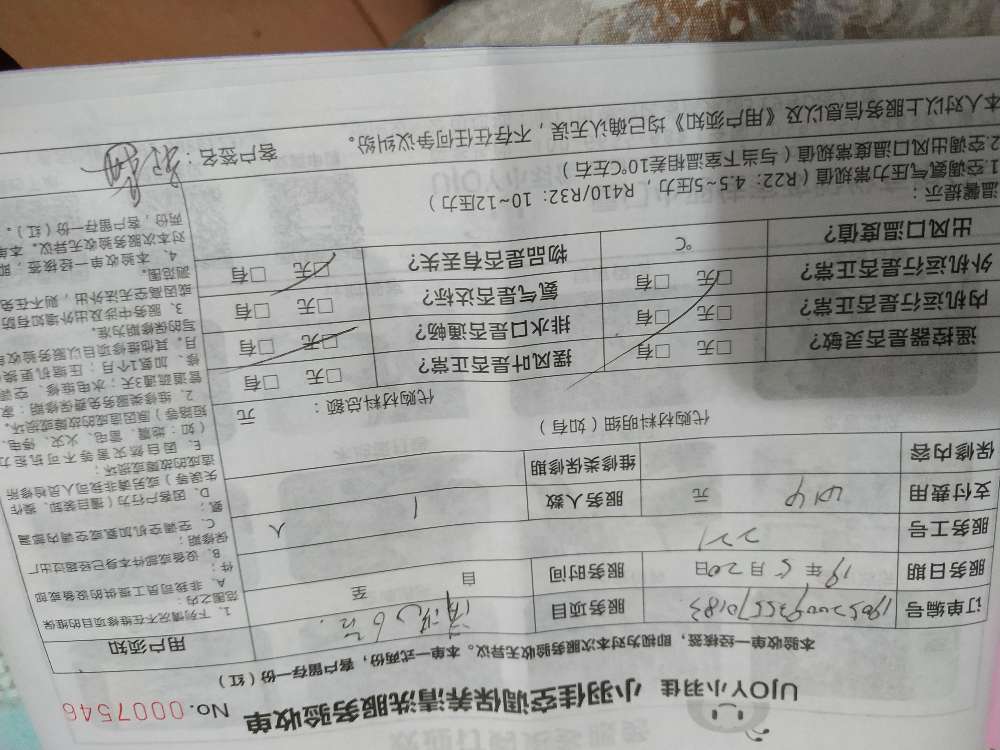 UJOY小羽佳 小羽佳空调保养清洗服务验收单 No. 0007546
本验收单一经核签,即视为对本次服务验收无异议。本单一式两份,客户留存一份(红)
订单编号 服务项目 清洗6台
服务日期 19年5月20日 服务时间 自 至
服务工号 221
支付费用 元 服务人数 1 人
保修内容 维修类保修期
代购材料明细(如有)
代购材料总额: 元
遥控器是否灵敏? □无 □有 摆风叶是否正常? □无 □有
内机运行是否正常? □无 □有 排水口是否通畅? □无 □有
外机运行是否正常? □无 □有 氨气是否达标? □无 □有
出风口温度值? ℃ 物品是否有丢失? □无 □有
温馨提示:
1.空调氨气压力常规值(R22:4.5~5压力,R410/R32:10~12压力)
2.空调出风口温度常规值(与当下室温相差10℃左右)
本人对以上服务信息以及《用户须知》均已确认无误,不存在任何争议纠纷。
客户签名:
用户须知
1、下列情况不在维修项目的维保
范围之内:
A、非我司员工提供的设备或部
件;
B、设备或部件本身已经超过出厂
保修期;
C、空调空机加氨或空调内部漏
氨;
D、因客户行为(擅自装卸、操作
失误等)或另请非我司人员检修所
造成的故障或损坏;
E、因自然灾害等不可抗拒力
(如:地震、雷电、火灾、停电、
短路等)原因造成的故障或损坏。
2、维修类服务免费保修期:家
管道疏通3天;水电维修、空调
修、加氨1个月;压缩机更换
月,其他维修项目以服务验收
写的保修期为准。
3、服务中涉及出外墙如有防
或因高空无法外出,则不在免
测范围。
4、本验收单一经核签,即
对本次服务验收无异议。本单
两份,客户留存一份(红)。